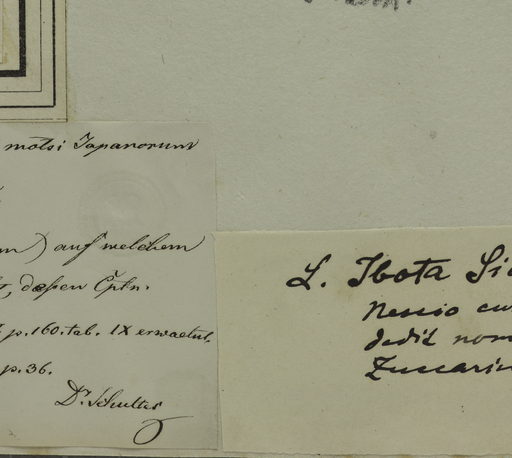 motsi Japanorum
) auf welchem
, deßen Cptn.
p. 160. tab. IX erwaehnt.
p. 36.
Dr. Schultes
L. Ibota Si
Nescio cu
dedit nom
Zuccarin